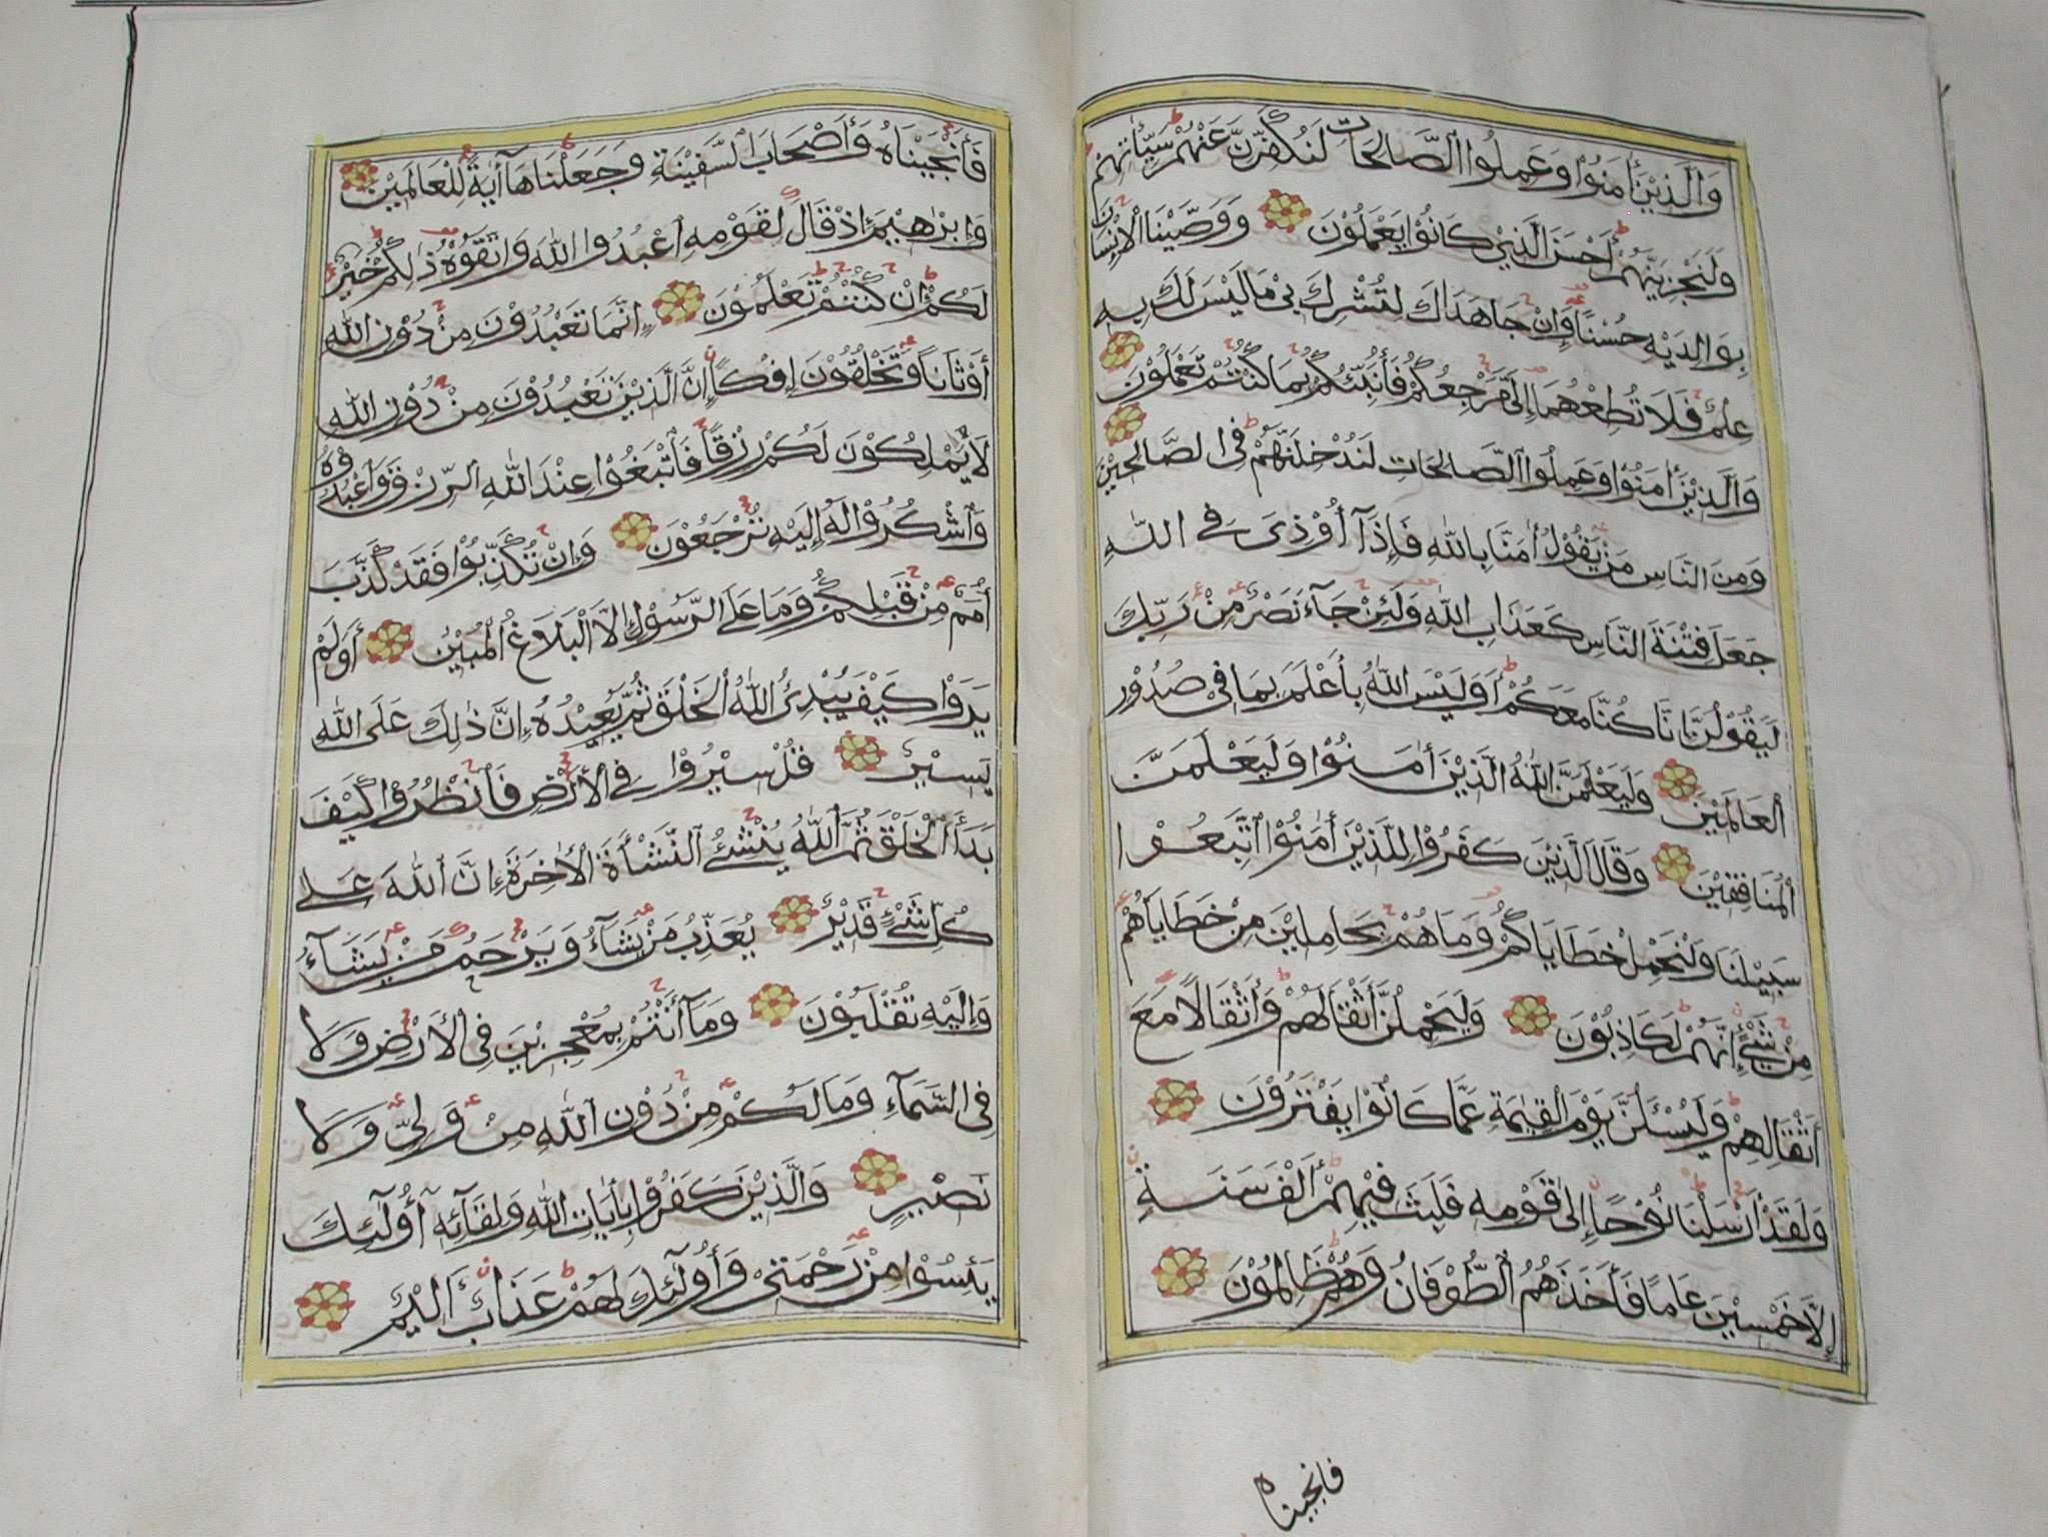 وَالَّذِيْنَ أٰمَنُوْا وَعَمِلُوا الصَّالِحَاتِ لَنُكَفِّرَنَّ عَنْهُمْ سَيِّئَاتِهِمْ
وَلَنَجْزِيَنَّهُمْ أَحْسَنَ الَّذِيْ كَانُوْا يَعْمَلُوْنَ وَوَصَّيْنَا الْإِنْسَانَ
بِوَالِدَيْهِ حُسْنًا وَإِنْ جَاهَدَاكَ لِتُشْرِكَ بِيْ مَا لَيْسَ لَكَ بِهِ
عِلْمٌ فَلَا تُطِعْهُمَا إِلَيَّ مَرْجِعُكُمْ فَأُنَبِّئُكُمْ بِمَا كُنْتُمْ تَعْمَلُوْنَ
وَالَّذِيْنَ أٰمَنُوْا وَعَمِلُوا الصَّالِحَاتِ لَنُدْخِلَنَّهُمْ فِي الصَّالِحِيْنَ
وَمِنَ النَّاسِ مَنْ يَقُوْلُ أٰمَنَّا بِاللّٰهِ فَإِذَآ أُوْذِيَ فِي اللّٰهِ
جَعَلَ فِتْنَةَ النَّاسِ كَعَذَابِ اللّٰهِ وَلَئِنْ جَآءَ نَصْرٌ مِنْ رَبِّكَ
لَيَقُوْلُنَّ إِنَّا كُنَّا مَعَكُمْ أَوَلَيْسَ اللّٰهُ بِأَعْلَمَ بِمَا فِيْ صُدُوْرِ
الْعَالَمِيْنَ وَلَيَعْلَمَنَّ اللّٰهُ الَّذِيْنَ أٰمَنُوْا وَلَيَعْلَمَنَّ
الْمُنَافِقِيْنَ وَقَالَ الَّذِيْنَ كَفَرُوْا لِلَّذِيْنَ أٰمَنُوْا اتَّبِعُوْا
سَبِيْلَنَا وَلْنَحْمِلْ خَطَايَاكُمْ وَمَا هُمْ بِحَامِلِيْنَ مِنْ خَطَايَاهُمْ
مِنْ شَيْءٍ إِنَّهُمْ لَكَاذِبُوْنَ وَلَيَحْمِلُنَّ أَثْقَالَهُمْ وَأَثْقَالًا مَعَ
أَثْقَالِهِمْ وَلَيُسْئَلُنَّ يَوْمَ الْقِيٰمَةِ عَمَّا كَانُوْا يَفْتَرُوْنَ
وَلَقَدْ أَرْسَلْنَا نُوْحًا إِلٰى قَوْمِهِ فَلَبِثَ فِيْهِمْ أَلْفَ سَنَةٍ
إِلَّا خَمْسِيْنَ عَامًا فَأَخَذَهُمُ الطُّوْفَانُ وَهُمْ ظَالِمُوْنَ
فانجيناه
فَأَنْجَيْنَاهُ وَأَصْحَابَ السَّفِيْنَةِ وَجَعَلْنَاهَآ أٰيَةً لِلْعَالَمِيْنَ
وَإِبْرٰهِيْمَ إِذْ قَالَ لِقَوْمِهِ اعْبُدُوا اللّٰهَ وَاتَّقُوْهُ ذٰلِكُمْ خَيْرٌ
لَكُمْ إِنْ كُنْتُمْ تَعْلَمُوْنَ إِنَّمَا تَعْبُدُوْنَ مِنْ دُوْنِ اللّٰهِ
أَوْثَانًا وَتَخْلُقُوْنَ إِفْكًا إِنَّ الَّذِيْنَ تَعْبُدُوْنَ مِنْ دُوْنِ اللّٰهِ
لَا يَمْلِكُوْنَ لَكُمْ رِزْقًا فَابْتَغُوْا عِنْدَ اللّٰهِ الرِّزْقَ وَاعْبُدُوْهُ
وَاشْكُرُوْا لَهُ إِلَيْهِ تُرْجَعُوْنَ وَإِنْ تُكَذِّبُوْا فَقَدْ كَذَّبَ
أُمَمٌ مِنْ قَبْلِكُمْ وَمَا عَلَى الرَّسُوْلِ إِلَّا الْبَلَاغُ الْمُبِيْنُ أَوَلَمْ
يَرَوْا كَيْفَ يُبْدِئُ اللّٰهُ الْخَلْقَ ثُمَّ يُعِيْدُهُ إِنَّ ذٰلِكَ عَلَى اللّٰهِ
يَسِيْرٌ قُلْ سِيْرُوْا فِي الْأَرْضِ فَانْظُرُوْا كَيْفَ
بَدَأَ الْخَلْقَ ثُمَّ اللّٰهُ يُنْشِئُ النَّشْأَةَ الْأٰخِرَةَ إِنَّ اللّٰهَ عَلٰى
كُلِّ شَيْءٍ قَدِيْرٌ يُعَذِّبُ مَنْ يَشَآءُ وَيَرْحَمُ مَنْ يَشَآءُ
وَإِلَيْهِ تُقْلَبُوْنَ وَمَآ أَنْتُمْ بِمُعْجِزِيْنَ فِي الْأَرْضِ وَلَا
فِي السَّمَآءِ وَمَا لَكُمْ مِنْ دُوْنِ اللّٰهِ مِنْ وَلِيٍّ وَلَا
نَصِيْرٍ وَالَّذِيْنَ كَفَرُوْا بِأٰيَاتِ اللّٰهِ وَلِقَآئِهِ أُوْلَٓئِكَ
يَئِسُوْا مِنْ رَحْمَتِيْ وَأُوْلَٓئِكَ لَهُمْ عَذَابٌ أَلِيْمٌ